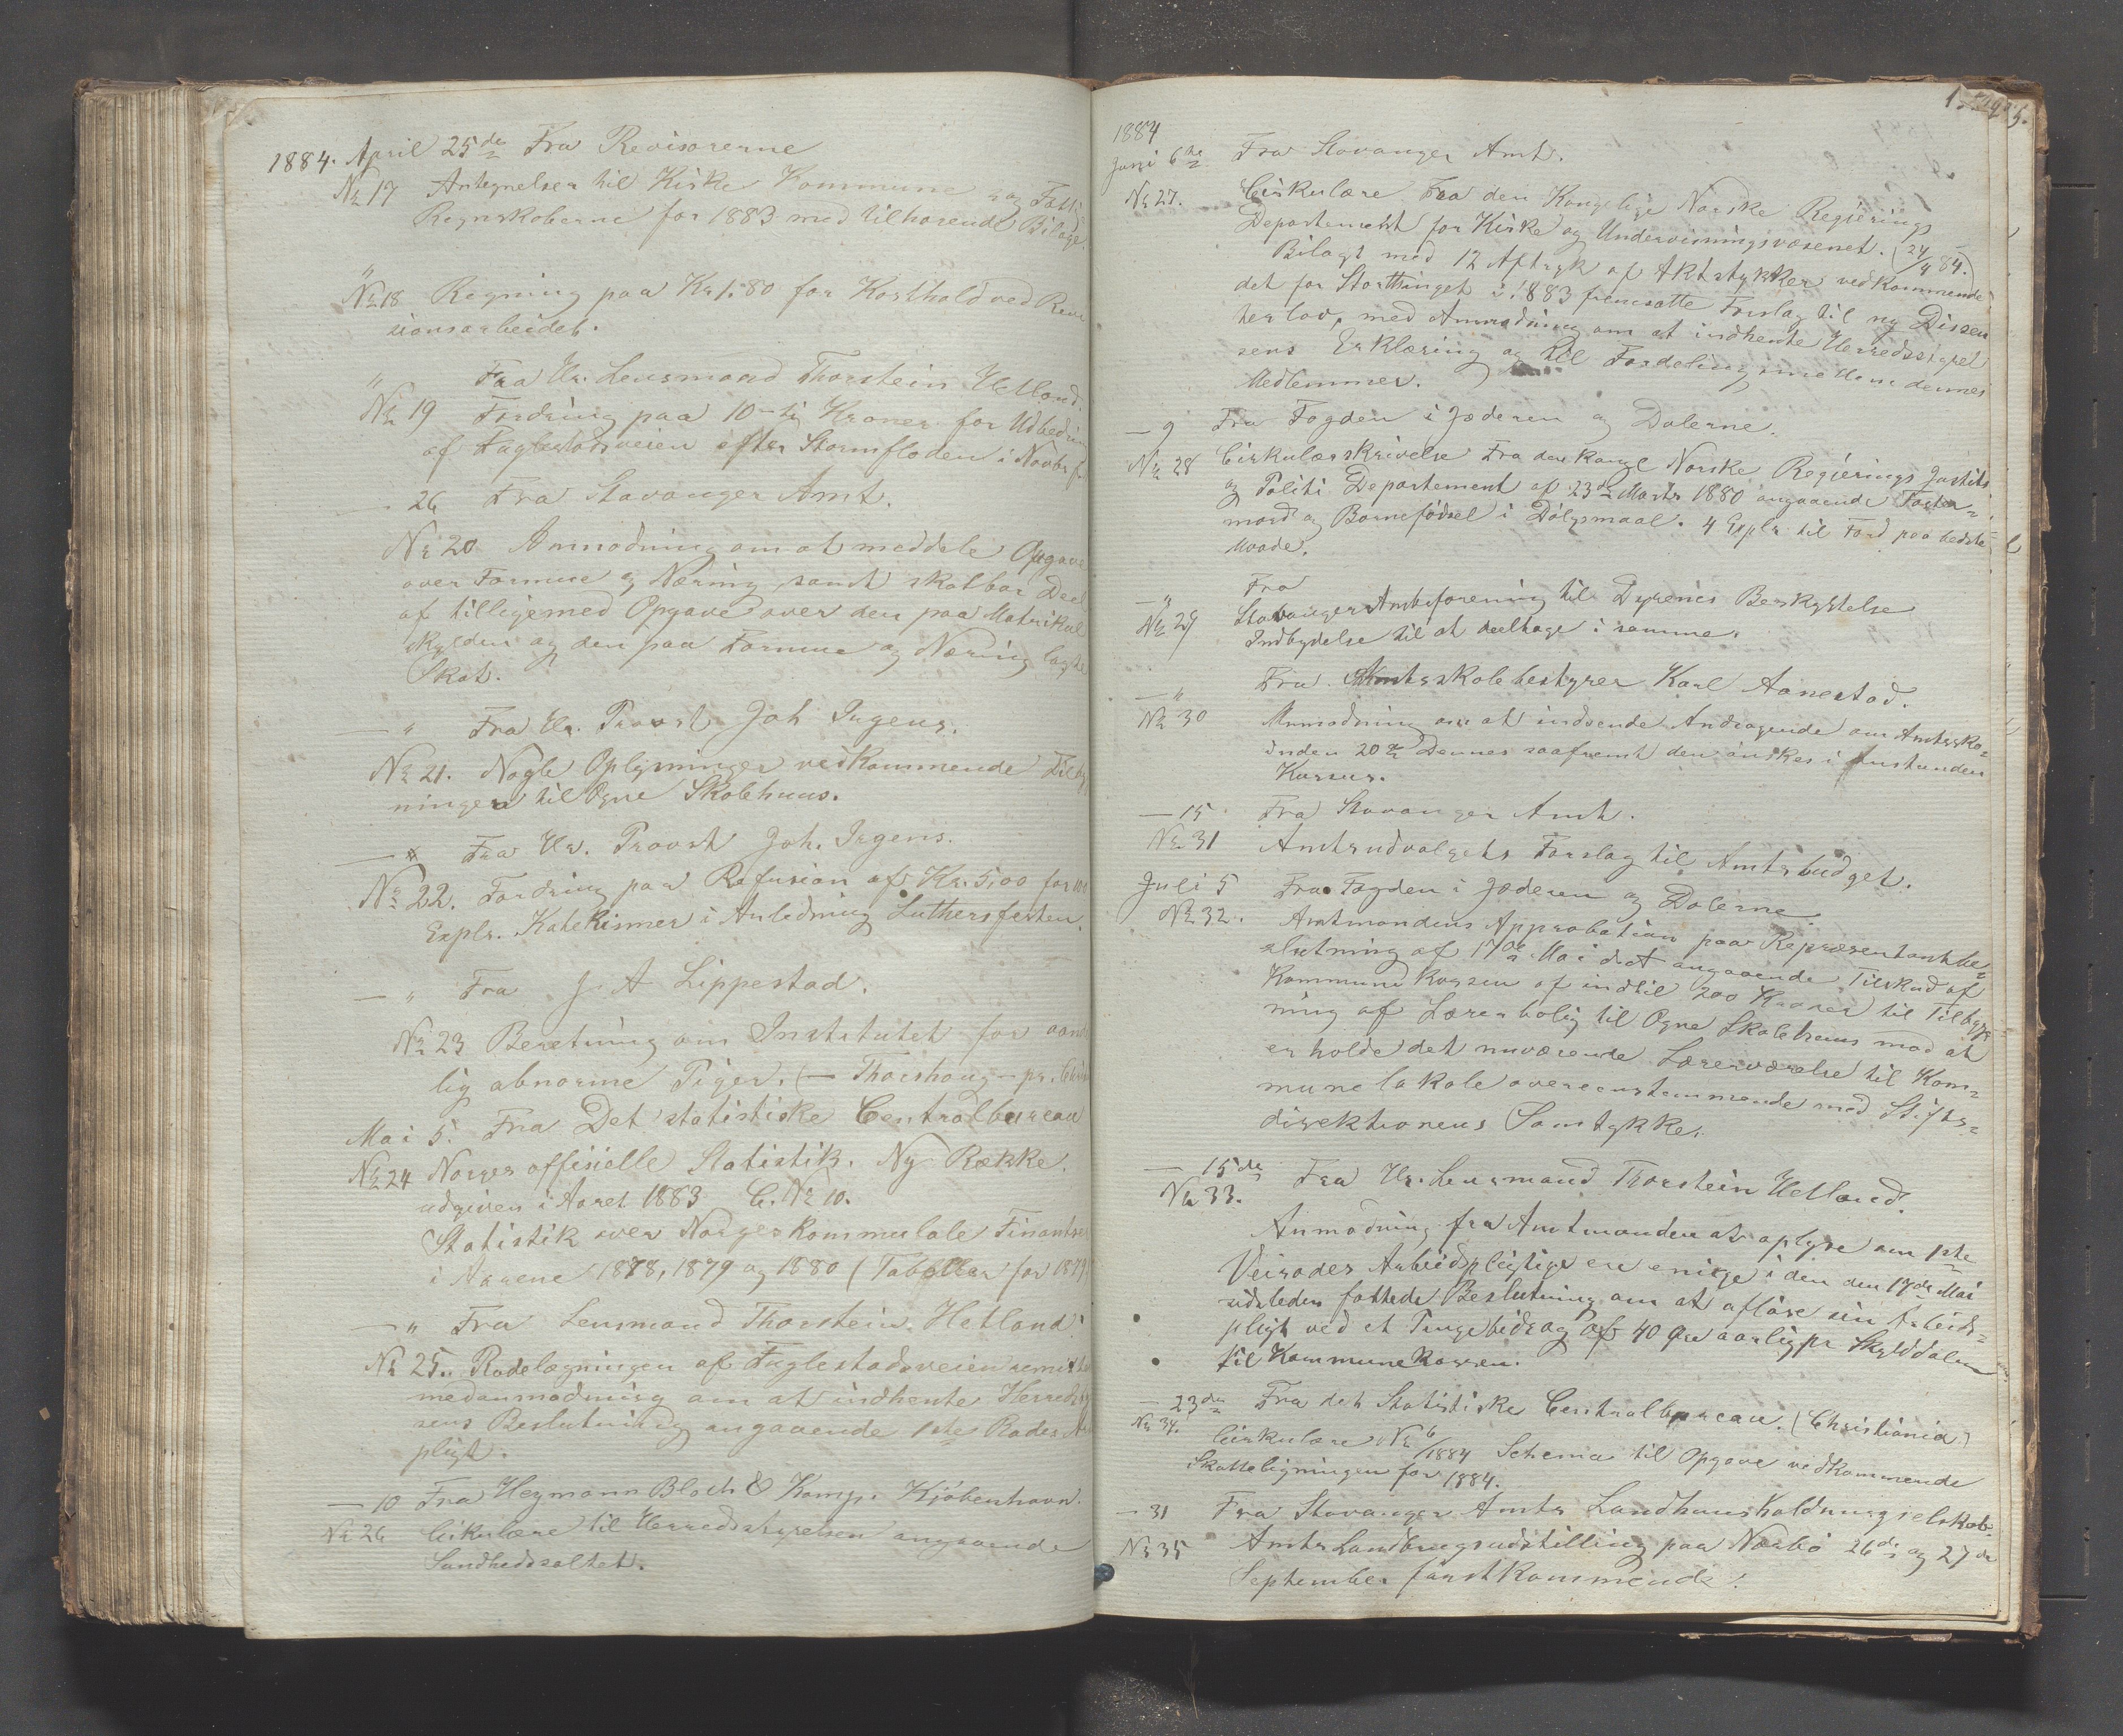 1884. April 25de Fra Revisorerne
No 17 Antegnelser til Kirke Kommune og Fatti
Regnskaberne for 1883 med tilhørende Bilage.
"
No 18 Regning paa Kr 1.80 for Kosthold ved Revi
sionsarbeidet.
" Fra Hr. Lensmand Thorstein Hetland.
No 19 Fordring paa 10-ti Kroner for Udbedrin
af Fuglestadveien efter Stormfloden i Novbr
— 26 Fra Stavanger Amt.
No 20 Anmodning om at meddele Opgave
over Formue og Næring samt skatbar Deel
af tilligemed Opgave over den paa Matrikul
skylden og den paa Formue og Næring lagte
Skat.
— " Fra Hr. Provst Joh Irgens.
No 21. Nogle Oplysninger vedkommende Tilbyg
ningen til Ogne Skolehuus.
— " Fra Hr. Provst Joh. Irgens.
No 22. Fordring paa Refusion af Kr. 5,00 for 100
Explr. Katekismer i Anledning Luthersfesten.
— " Fra J. A Lippestad.
No 23 Beretning om Institutet for aand
lig abnorme Piger. (— Thorshoug — pr. Chri
Mai 5. Fra Det statistiske Centralbureau
No 24 Norges officielle Statistik. Ny Række.
udgiven i Aaret 1883 C. No 10.
Statistik over Norges Kommunale Finantser
i Aarene 1878, 1879 og 1880 (Tabeller for 1879
— " Fra Lensmand Thorstein Hetland.
No 25. Rodelægningen af Fuglestadveien
med anmodning om at indhente Herreds
sens Beslutning angaaende 1ste Rodes A
pligt.
— 10 Fra Heymann Bloch & Komp. Kjøbenhavn.
No 26 Cirkulære til Herredsstyrelsen angaaende
Sundhedssaltet.
1884
Juni 6te Fra Stavanger Amt.
No 27. Cirkulære Fra den Kongelige Norske Regjerings
Departement for Kirke og Undervisningsvæsenet. (24/4 84.)
Bilagt med 12 Aftryk af Aktstykker vedkommende
det for Storthinget i 1883 fremsatte Forslag til ny Dissen
terlov, med Anmodning om at indhente Herredsstyrel
sens Erklæring og til Fordeling imellem dennes
Medlemmer.
— 9 Fra Fogden i Jæderen og Dalerne.
No 28 Cirkulærskrivelse Fra den Kongl Norske Regjerings Justits
og Politi Departement af 23de Marts 1880 angaaende Foster=
mord og Barnefødsel i Dølgsmaal. 4 Explr til Ford paa bedste
Maade.
— " Fra
No 29 Stavanger Amtsforening til Dyrenes Beskyttelse
Indbydelse til at deeltage i samme.
— " Fra Amtsskolebestyrer Karl Aanestad.
No 30 Anmodning om at indsende Andragende om Amtssko=
inden 20de Dennes saafremt den ønskes i
Kursus.
— 15 Fra Stavanger Amt.
No 31 Amtsudvalgets Forslag til Amtsbudget.
Juli 5 Fra Fogden i Jæderen og Dalerne.
No 32. Amtmandens Approbation paa Repræsentantbe=
slutning af 17de Mai d A angaaende Tilskud af
Kommunekassen af indtil 200 Kroner til Tilbyg
ning af Lærerbolig til Ogne Skolehuus mod at
erholde det nuværende Lærerværelse til Kom=
munelokale overensstemmende med Stifts=
direktionens Samtykke.
— 15de Fra Hr. Lensmand Thorstein Hetland.
No 33.
Anmodning fra Amtmanden at oplyse om 1ste
Veirodes Arbeidspligtige ere enige i den den 17de Mai
sidstleden fattede Beslutning om at afløse sin Arbeids=
pligt ved et Pengebidrag af 40 Øre aarlig pr Skylddaler
til Kommunekassen.
— 23de Fra det Statistiske Centralbureau. (Christiania)
No 34. Cirkulære No 6/1884 Schema til Opgave vedkommende
Skatteligningen for 1884.
— 31 Fra Stavanger Amts Landhuusholdningselskab.
No 35 Amts Landbrugsudstilling paa Nærbø 26de og 27de
September førstkommende.